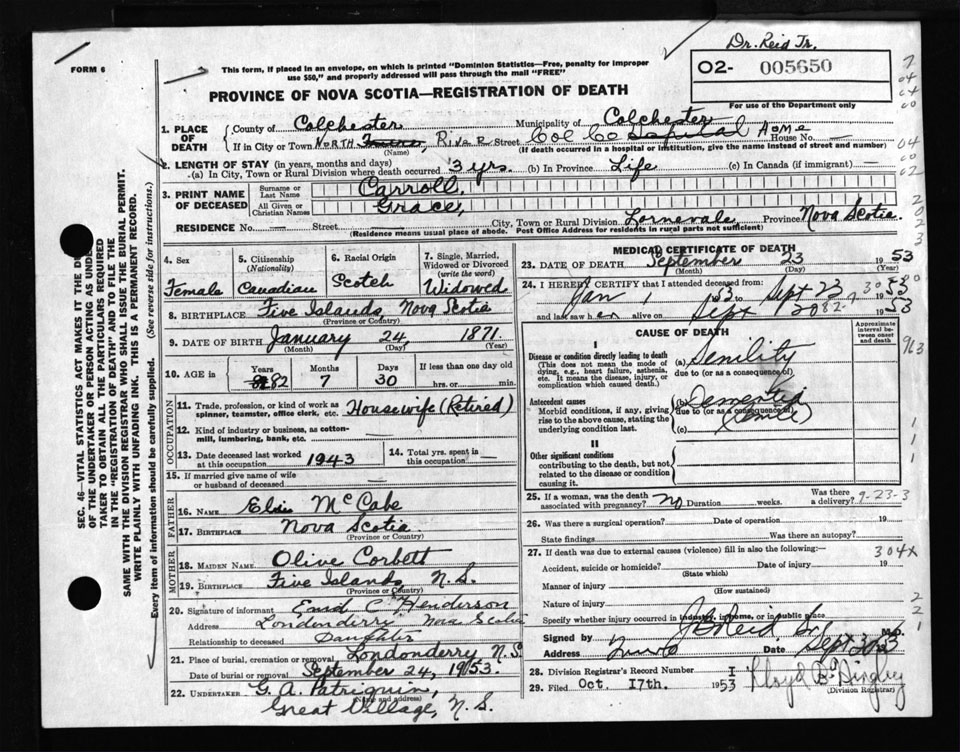 Dr. Reid Jr.
FORM 6
This form, if placed in an envelope, on which is printed "Dominion Statistics—Free, penalty for improper use $50," and properly addressed will pass through the mail "FREE"
02- 005650
For use of the Department only
PROVINCE OF NOVA SCOTIA—REGISTRATION OF DEATH
1. PLACE OF DEATH
County of Colchester Municipality of Colchester
If in City or Town North River Street Col Co Hospital Home House No. —
(Name) (If death occurred in a hospital or institution, give the name instead of street and number)
2. LENGTH OF STAY (in years, months and days)
(a) In City, Town or Rural Division where death occurred 3 yrs. (b) In Province Life (c) In Canada (if immigrant) —
3. PRINT NAME OF DECEASED
Surname or Last Name Carroll,
All Given or Christian Names Grace,
RESIDENCE No. — Street — City, Town or Rural Division Lornevale, Province Nova Scotia.
(Residence means usual place of abode. Post Office Address for residents in rural parts not sufficient)
4. Sex Female
5. Citizenship (Nationality) Canadian
6. Racial Origin Scotch
7. Single, Married, Widowed or Divorced (write the word) Widowed
8. BIRTHPLACE Five Islands, Nova Scotia
(Province or Country)
9. DATE OF BIRTH January 24, 1871.
(Month) (Day) (Year)
10. AGE in Years 82 Months 7 Days 30 If less than one day old hrs. or min.
OCCUPATION
11. Trade, profession, or kind of work as spinner, teamster, office clerk, etc. Housewife (Retired)
12. Kind of industry or business, as cotton-mill, lumbering, bank, etc.
13. Date deceased last worked at this occupation 1943
14. Total yrs. spent in this occupation —
15. If married give name of wife or husband of deceased
FATHER
16. NAME McCabe
17. BIRTHPLACE Nova Scotia
(Province or Country)
MOTHER
18. MAIDEN NAME Olive Corbett
19. BIRTHPLACE Five Islands, N.S.
(Province or Country)
20. Signature of informant Enid C. Henderson
Address Londonderry Nova Scotia
Relationship to deceased Daughter
21. Place of burial, cremation or removal Londonderry N.S.
Date of burial or removal September 24, 1953.
22. UNDERTAKER G. A. Patriquin,
(Name and address)
Great Village, N.S.
MEDICAL CERTIFICATE OF DEATH
23. DATE OF DEATH September 23 1953
(Month) (Day) (Year)
24. I HEREBY CERTIFY that I attended deceased from:
Jan 1 53 to Sept 23 1953
and last saw her alive on Sept 20 1953
Approximate interval between onset and death
CAUSE OF DEATH
I
Disease or condition directly leading to death (a) Senility
(This does not mean the mode of dying, e.g., heart failure, asthenia, etc. It means the disease, injury, or complication which caused death.)
due to (or as a consequence of)
Antecedent causes
Morbid conditions, if any, giving rise to the above cause, stating the underlying condition last.
(b) Dementia
due to (or as a consequence of)
(c) (Senile)
II
Other significant conditions
contributing to the death, but not related to the disease or condition causing it.
25. If a woman, was the death associated with pregnancy? No Duration weeks. Was there a delivery?
9-23-3
26. Was there a surgical operation? Date of operation 19
State findings Was there an autopsy?
27. If death was due to external causes (violence) fill in also the following:—
304x
Accident, suicide or homicide? Date of injury 19
(State which)
Manner of injury
(How sustained)
Nature of injury
Specify whether injury occurred in industry, in home, or in public place
Signed by J B Reid Sr M.D.
Address Truro Date Sept 30/53
28. Division Registrar's Record Number I
29. Filed Oct. 17th. 1953
(Division Registrar)
SEC. 46—VITAL STATISTICS ACT MAKES IT THE DU
OF THE UNDERTAKER OR PERSON ACTING AS UNDER
TAKER TO OBTAIN ALL THE PARTICULARS REQUIRED
IN THE "REGISTRATION OF DEATH" AND TO FILE THE
SAME WITH THE DIVISION REGISTRAR WHO SHALL ISSUE THE BURIAL PERMIT.
WRITE PLAINLY WITH UNFADING INK. THIS IS A PERMANENT RECORD.
Every item of information should be carefully supplied. (See reverse side for instructions.)